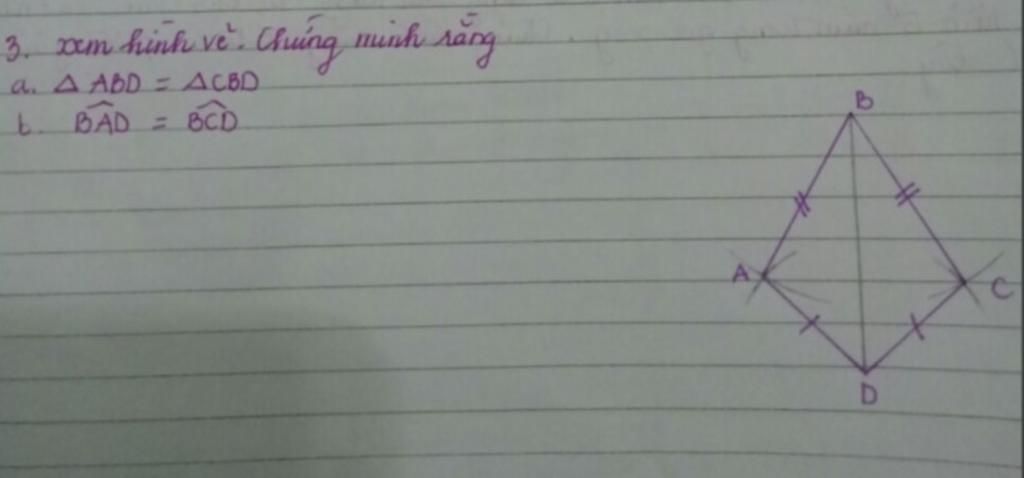 3. xem hình vẽ. Chứng minh rằng
a. △ ABD = △CBD
b. \widehat{BAD} = \widehat{BCD}
B
A
C
D